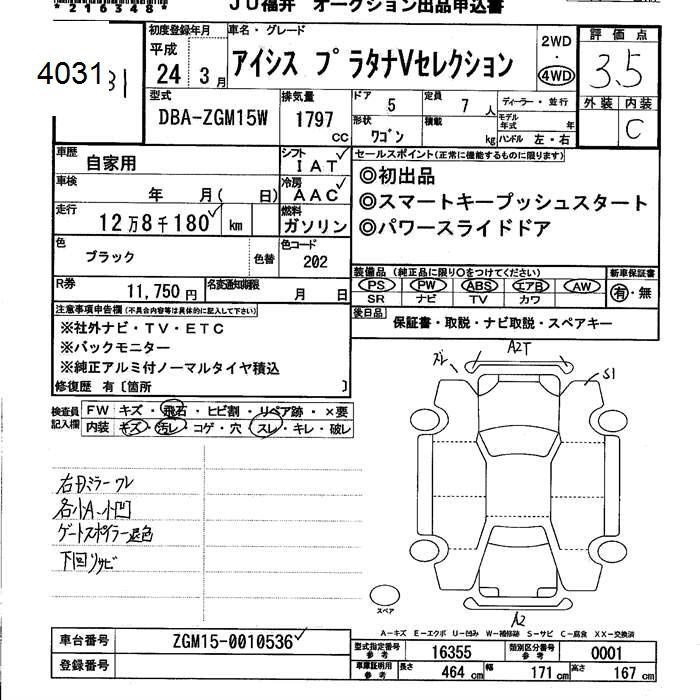 *216348*
JU福井 オークション出品申込書
4031
31
初度登録年月
平成
24年 3月
車名・グレード
アイシス プラタナVセレクション
2WD
・
4WD
評価点
3.5
外装 内装
C
型式
DBA-ZGM15W
排気量
1797
cc
ドア
5
定員
7人
形状
ワゴン
積載
kg
ディーラー・並行
モデル年式 年
ハンドル 左・右
車歴
自家用
シフト
IAT
車検
年 月( 日)
冷房
AAC
走行
12万8千180 km
燃料
ガソリン
色
ブラック
色替
色コード
202
R券
11,750円
名変通知期限
月 日
セールスポイント(正常に機能するものに限ります)
◎初出品
◎スマートキープッシュスタート
◎パワースライドドア
装備品(純正品に限り○をつけてください)
PS PW ABS エアB AW
SR ナビ TV カワ
新車保証書
有・無
後日品
保証書・取説・ナビ取説・スペアキー
注意事項申告欄(不具合内容等は具体的に記入して下さい)
※社外ナビ・TV・ETC
※バックモニター
※純正アルミ付ノーマルタイヤ積込
修復歴 有〔箇所 〕
検査員記入欄
FW キズ・飛石・ヒビ割・リペア跡・×要
内装 キズ・汚レ・コゲ・穴・スレ・キレ・破レ
右Dミラーワレ
各小A・小凹
ゲートスポイラー退色
下回りサビ
ズレ
A2T
S1
A2
スペア
A-キズ E-エクボ U-凹み W-補修跡 S-サビ C-腐食 XX-交換済
車台番号
ZGM15-0010536
登録番号
型式指定番号
参考
16355
類別区分番号
参考
0001
車庫証明用
参考
長さ 464 cm 幅 171 cm 高さ 167 cm